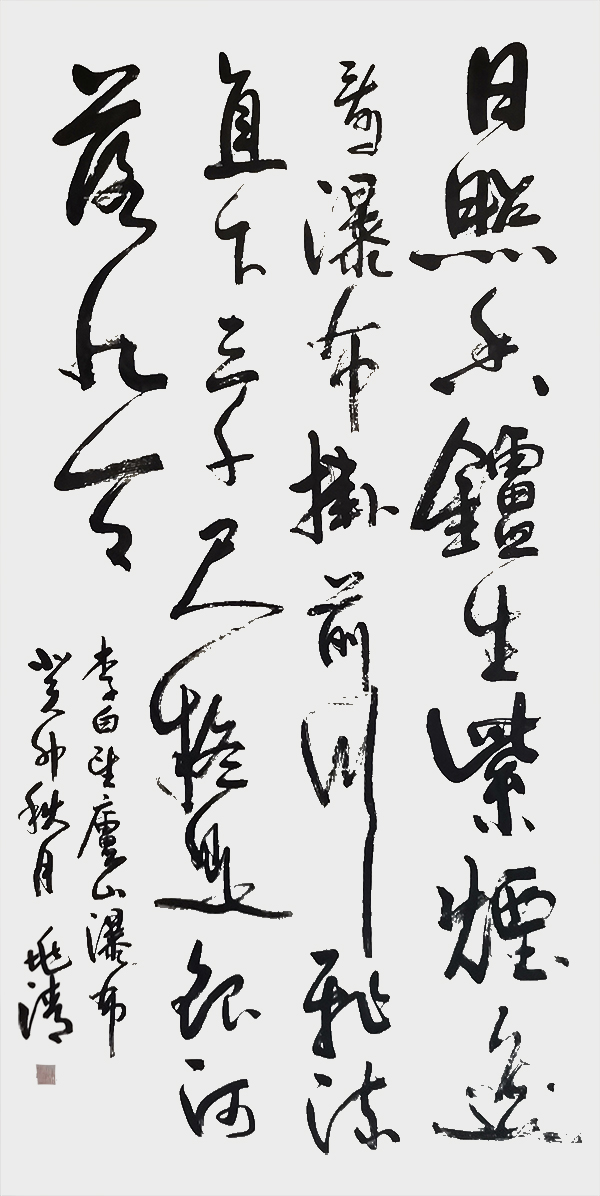 日照香鑪生紫煙遥
看瀑布掛前川飛流
直下三千尺疑是銀河
落九天
李白望廬山瀑布
癸卯秋月 清